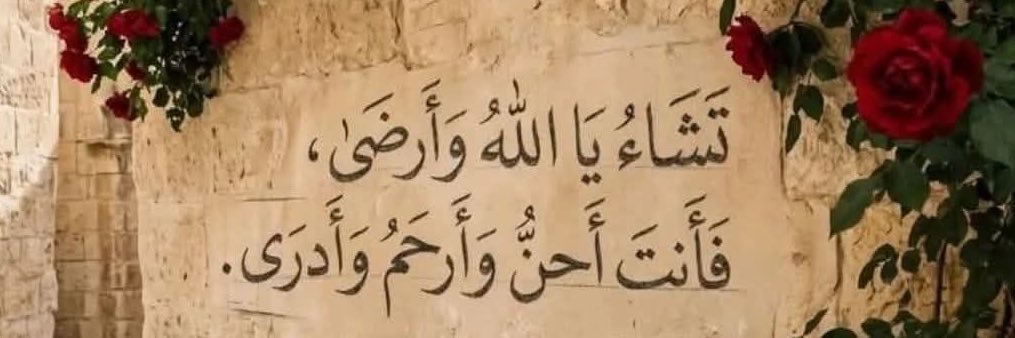 تَشَاءُ يَا اللّٰهُ وَأَرضَىٰ،
فَأَنتَ أَحنُّ وَأَرحَمُ وَأَدرَى.